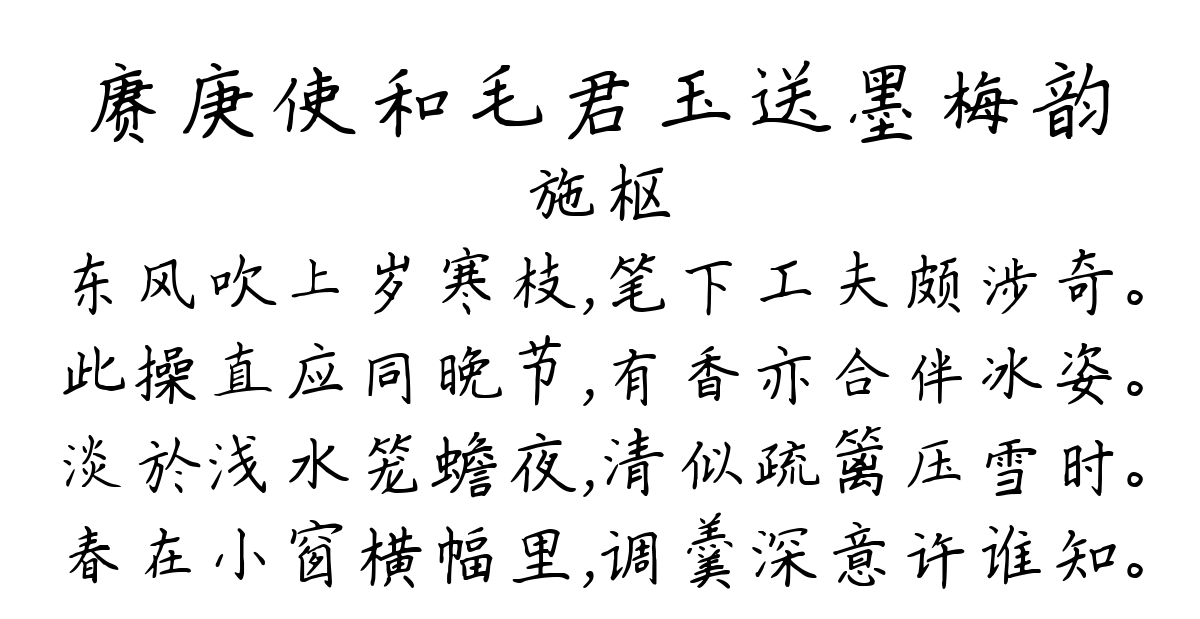 赓庚使和毛君玉送墨梅韵
施枢
东风吹上岁寒枝,笔下工夫颇涉奇。
此操直应同晚节,有香亦合伴冰姿。
淡於浅水笼蟾夜,清似疏篱压雪时。
春在小窗横幅里,调羹深意许谁知。